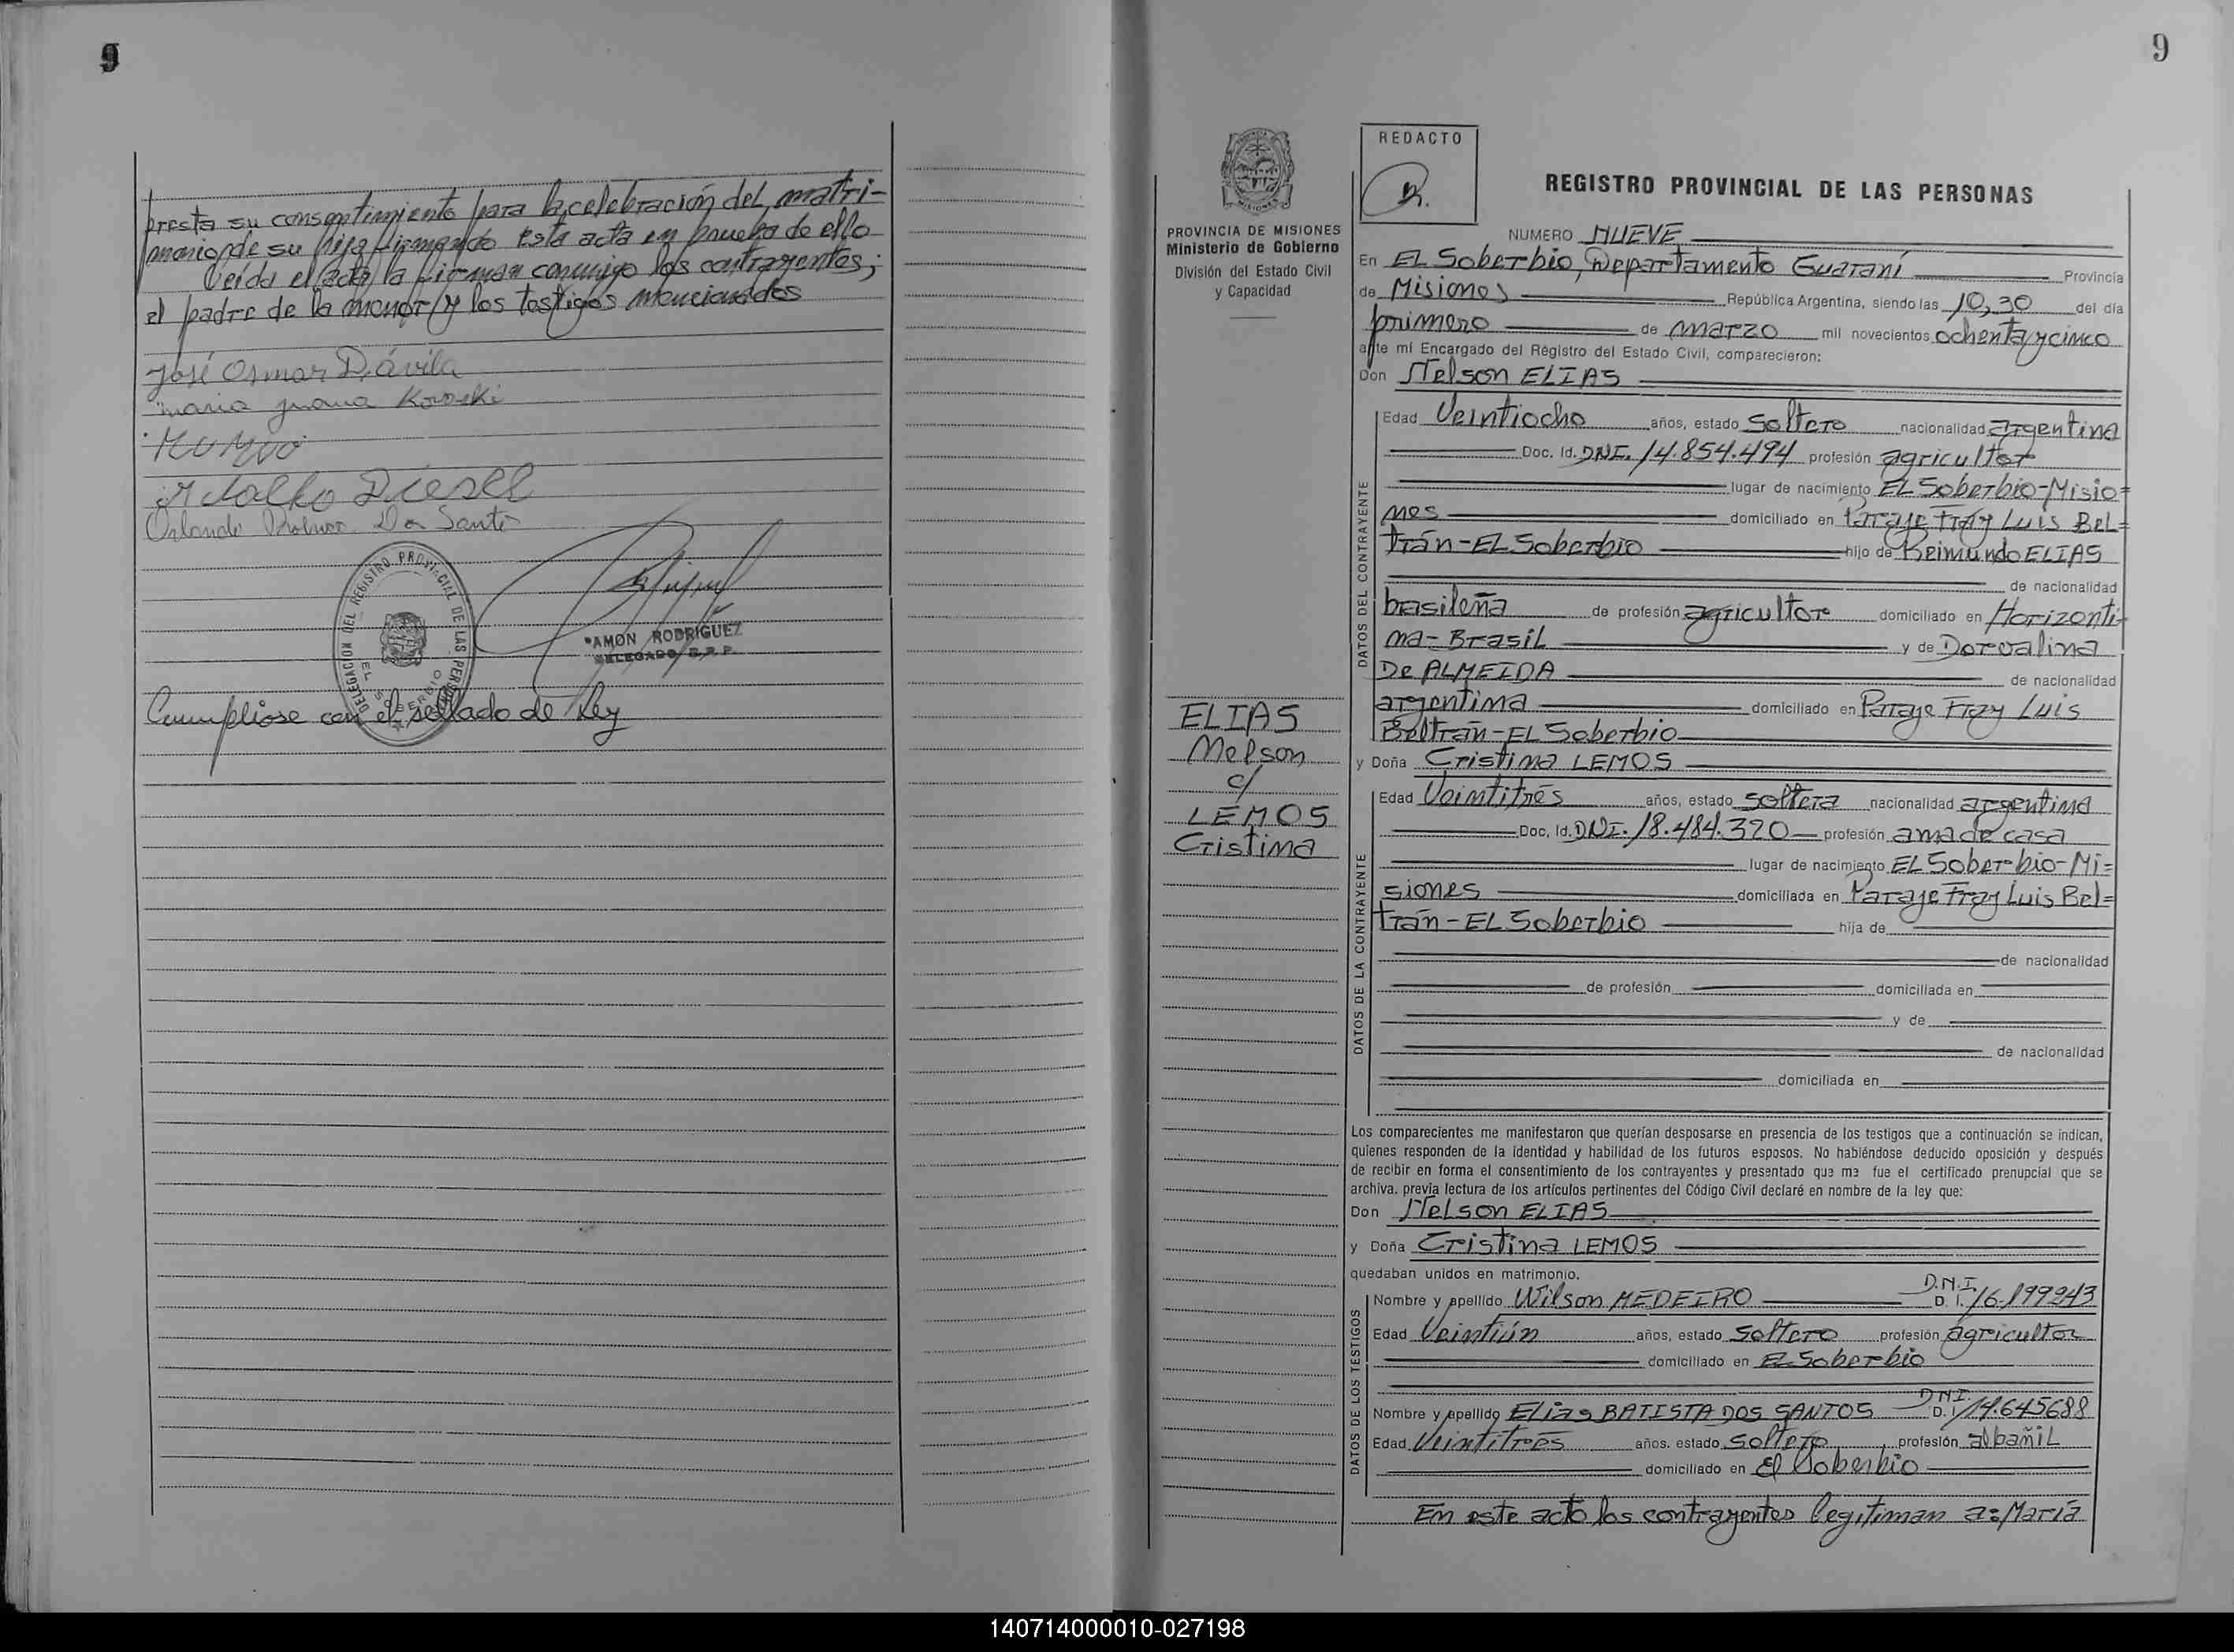 9
presta su consentimiento para la celebración del matri-
monio de su hija firmando esta acta en prueba de ello
Leída el acta, la firman conmigo los contrayentes;
el padre de la menor y los testigos mencionados
José Osmar Dávila
maria juana
Diesel
Orlando Dos Santo
DELEGACION DEL REGISTRO PROVINCIAL DE LAS PERSONAS
EL SOBERBIO
RAMON RODRIGUEZ
DELEGADO R.P.P.
Cumpliose con el sellado de Ley
9
REDACTO
PROVINCIA DE MISIONES
Ministerio de Gobierno
División del Estado Civil
y Capacidad
ELIAS
Nelson
c/
LEMOS
Cristina
REGISTRO PROVINCIAL DE LAS PERSONAS
NUMERO NUEVE
En EL Soberbio, Departamento Guaraní Provincia
de Misiones República Argentina, siendo las 10,30 del día
primero de marzo mil novecientos ochenta y cinco
ante mí Encargado del Registro del Estado Civil, comparecieron:
Don Nelson ELIAS
DATOS DEL CONTRAYENTE
Edad Veintiocho años, estado Soltero nacionalidad argentina
Doc. Id. DNI. 14.854.494 profesión agricultor
lugar de nacimiento EL Soberbio-Misio=
nes domiciliado en Paraje Fray Luis Bel=
trán-EL Soberbio hijo de Reimundo ELIAS
de nacionalidad
brasileña de profesión agricultor domiciliado en Horizonti-
na-Brasil y de Dorvalina
De ALMEIDA de nacionalidad
argentina domiciliado en Paraje Fray Luis
Beltrán-EL Soberbio
y Doña Cristina LEMOS
DATOS DE LA CONTRAYENTE
Edad Veintitrés años, estado soltera nacionalidad argentina
Doc. Id. DNI. 18.484.320 profesión ama de casa
lugar de nacimiento EL Soberbio-Mi=
siones domiciliada en Paraje Fray Luis Bel=
trán-EL Soberbio hija de
de nacionalidad
de profesión domiciliada en
y de
de nacionalidad
domiciliada en
Los comparecientes me manifestaron que querían desposarse en presencia de los testigos que a continuación se indican,
quienes responden de la identidad y habilidad de los futuros esposos. No habiéndose deducido oposición y después
de recibir en forma el consentimiento de los contrayentes y presentado que me fue el certificado prenupcial que se
archiva. previa lectura de los artículos pertinentes del Código Civil declaré en nombre de la ley que:
Don Nelson ELIAS
y Doña Cristina LEMOS
quedaban unidos en matrimonio.
DATOS DE LOS TESTIGOS
Nombre y apellido Wilson MEDEIRO D.N.I. D. I. 16.199243
Edad Veintiún años, estado soltero profesión agricultor
domiciliado en EL Soberbio
Nombre y apellido Elias BATISTA DOS SANTOS DNI. D. I. 14.645688
Edad Veintitrés años. estado soltero profesión albañil
domiciliado en El Soberbio
En este acto los contrayentes legitiman a: María
140714000010-027198